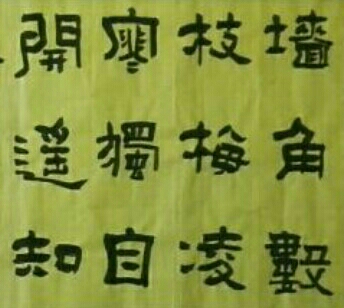 墙角數
枝梅凌
寒獨自
開遥知